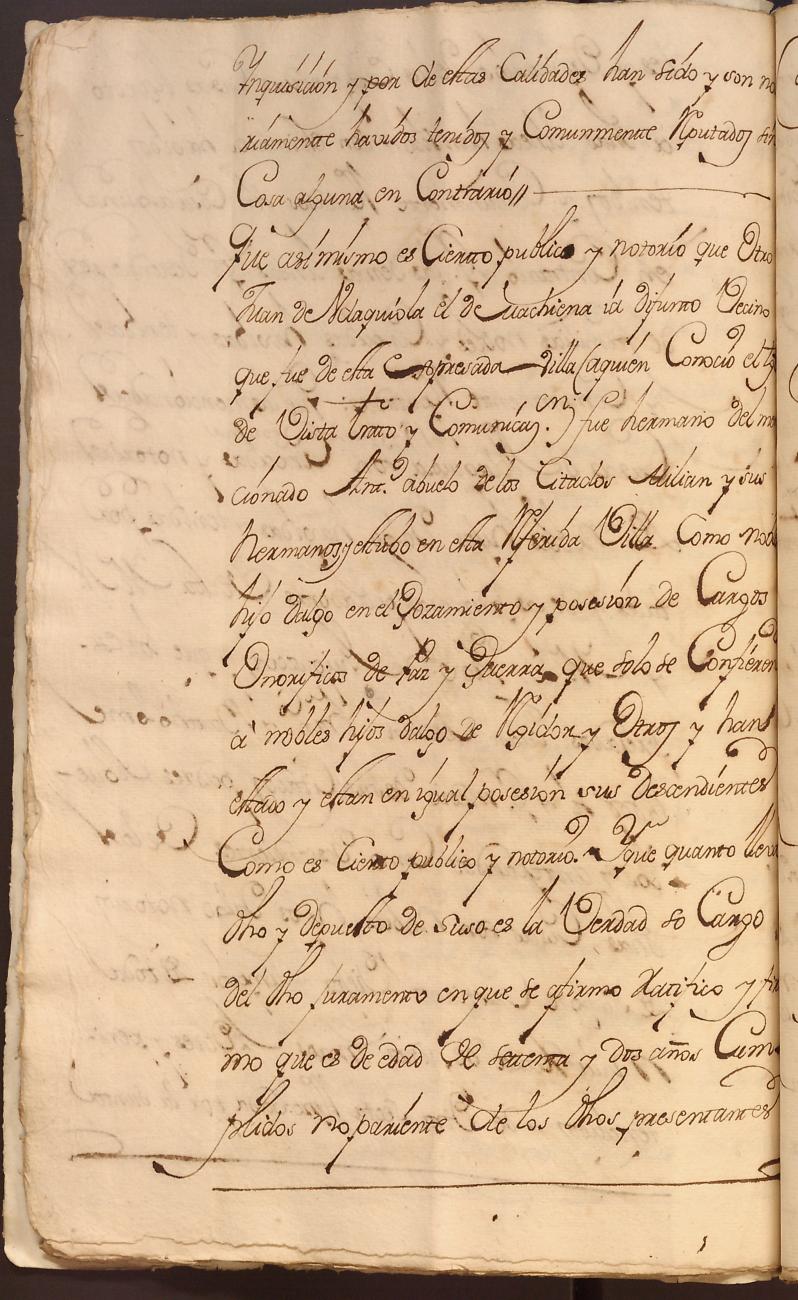 Ynquisición y por de estas Calidades han sido y son no
riamente havidos tenidos y Comunmente Reputados sin
Cosa alguna en Contrario//
Que asimismo es Cierto publico y notorio que Otro
Juan de el de ia difunto Vecino
que fue de esta Expresada Villa (aquien Conoció el tgo
de Vista trato y Comunicaz.on) fue hermano del me
cionado Ant.o abuelo de los Citados Milian y sus
hermanos y estubo en esta Referida Villa Como nobl
hijo dalgo en el Gozamiento y posesión de Cargos
Onorificos de Paz y Guerra que solo se Confieren
a nobles hijos dalgo de Regidor y Otros y han
estado y estan en igual posesión sus Descendientes
Como es Cierto publico y notorio. Y que quanto lleva
dho y depuesto de suso es la Verdad so Cargo
del dho Juramento en que se afirmo Ratifico y fir
mo que es de edad de setenta y dos años Cum
plidos no pariente de los dhos presentantes